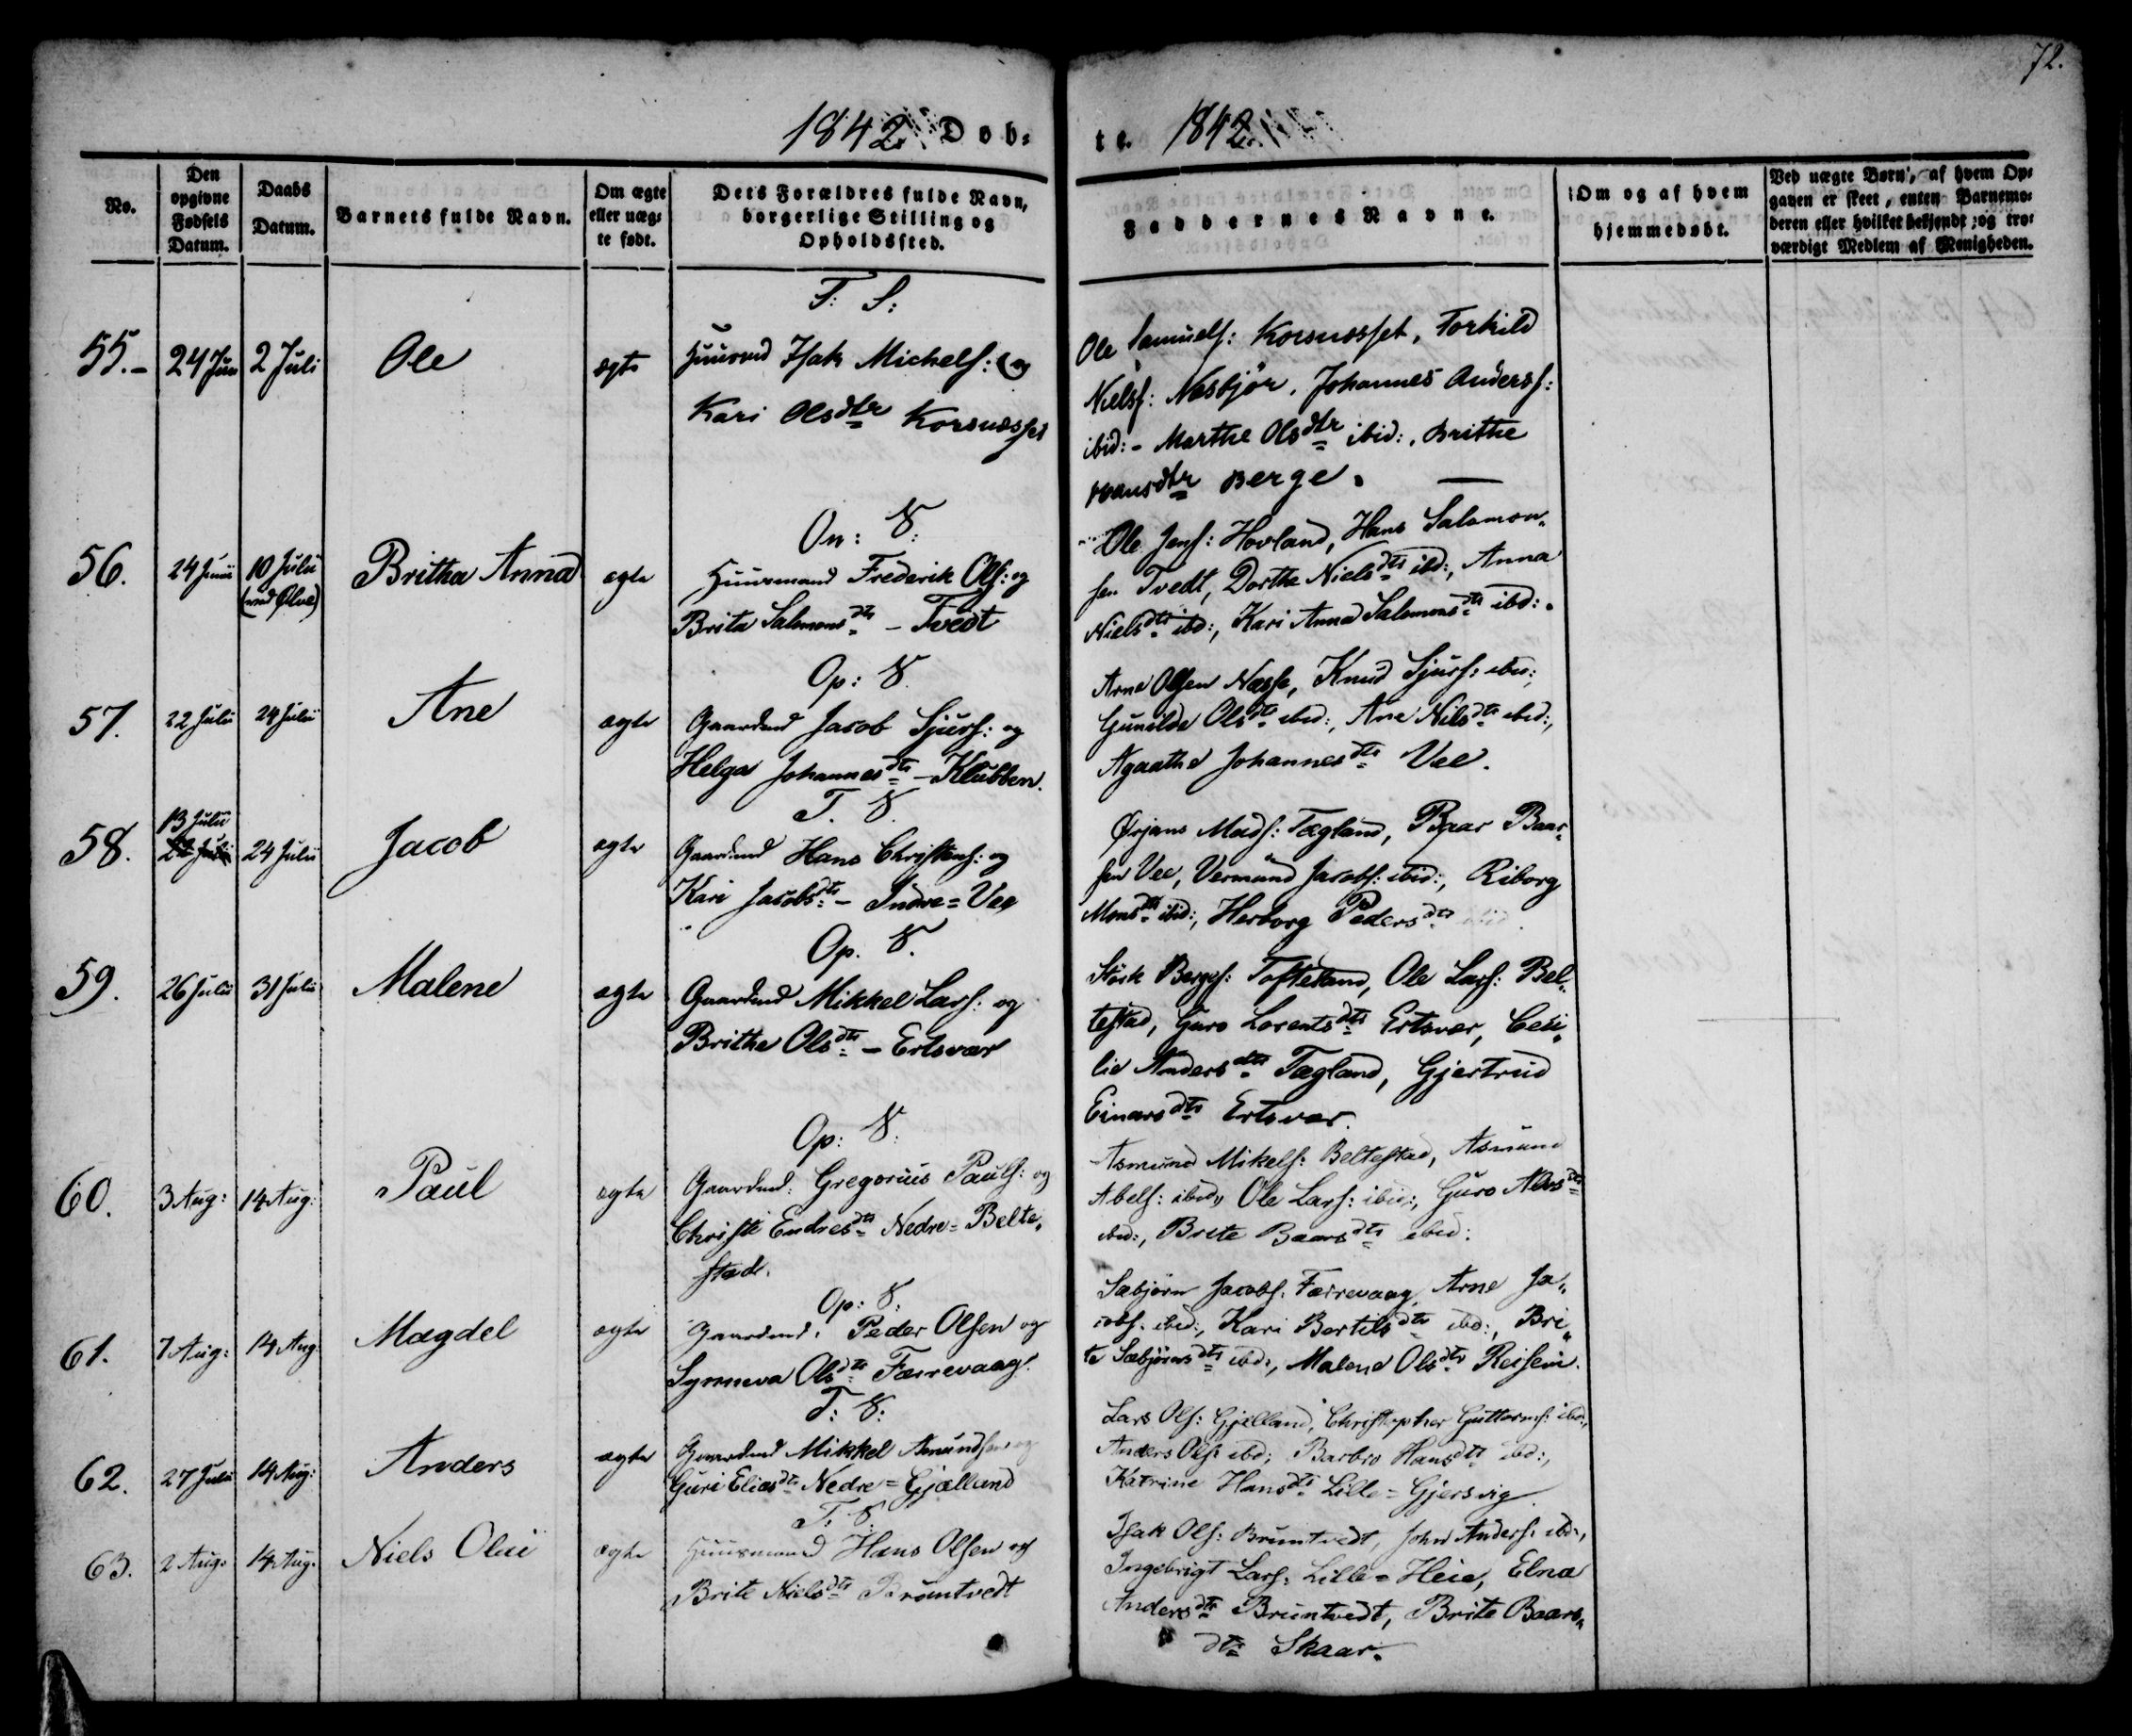 72.
1842. Døb-
te. 1842.
No.
Den
opgivne
Fødsels
Datum.
Daabs
Datum.
Barnets fulde Navn.
Om ægte
eller uæg-
te født.
Dets Forældres fulde Navn,
borgerlige Stilling og
Opholdssted.
Faddernes Navne.
Om og af hvem
hjemmedøbt.
Ved uægte Børn, af hvem Op-
gaven er skeet, enten Barnemo-
deren eller hvilket bekjendt og tro-
værdigt Medlem af Menigheden.
T: S:
55.- 24 Juni 2 Juli Ole ægte Huusmd Isak Michels: og
Kari Olsdtr Korsnæsset
Ole Samuels: Korsnæsset, Torkild
Niels: Næsbjør, Johannes Anders:
ibid: - Marthe Olsdtr ibid:, Brithe
Hansdtr Berge. —
On: S:
56. 24 Junii 10 Julii
(ved Ølve)
Britha Anna ægte Huusmand Frederik Ols: og
Brita Salomonsdtr - Tvedt
Ole Jens: Hovland, Hans Salomon-
sen Tvedt, Dorthe Nielsdtr ibd:, Anna
Nielsdtr ibd:, Kari Anna Salomonsdtr ibd:.
Op: S.
57. 22 Julii 24 Julii Ane ægte Gaardmd Jacob Sjurs: og
Helga Johannesdtr - Klubben.
Arne Olsen Næsse, Knud Sjurs: ibid:,
Gunilde Olsdtr ibid:, Ane Nilsdtr ibid:,
Agaathe Johannesdtr Vee.
T. S.
58. 13 Julii
24 Julii Jacob ægte Gaardmd Hans Christens: og
Kari Jacobsdtr - Indre=Vee
Ørjans Mads: Tægland, Baar Baar-
sen Vee, Vermund Jacobs: ibid:, Riborg
Monsdtr ibid:, Herborg Pedersdtr ibid.
Op. S.
59. 26 Julii 31 Julii Malene ægte Gaardmd Mikkel Lars: og
Brithe Olsdtr - Ertsvær
Størk Børges: Toftesand, Ole Lars: Bel-
testad, Guro Lorentsdtr Ertsvær, Ceci-
lie Andersdtr Tægland, Gjertrud
Einarsdtr Ertsvær.
Op: S:
60. 3 Aug: 14 Aug: Paul ægte Gaardmd: Gregorius Pauls: og
Christi Endresdtr Nedre=Belte-
stad.
Asmund Mikels: Beltestad, Asmund
Abels: ibid:, Ole Lars: ibid:, Guro
ibid:, Brite Baarsdtr ibid:
Op: S:
61. 7 Aug: 14 Aug Magdel ægte Gaardmd: Peder Olsen og
Synneva Olsdtr Færrevaag.
Sæbjørn Jacobs: Færrevaag, Arne Ja-
cobs: ibid:, Kari Bertilsdtr ibd:, Bri-
te Sæbjørnsdtr ibd:, Malene Olsdtr Reisein.
T: S:
62. 27 Julii 14 Aug: Anders ægte Gaardmd Mikkel Amundsen og
Guri Eliasdtr Nedre=Gjælland
Lars Ols: Gjælland, Christopher Guttorms: ibd:,
Anders Ols: ibd:, Barbro Hansdtr ibd:,
Katrine Hansdtr Lille=Gjersvig.
T: S:
63. 2 Aug: 14 Aug: Niels Olai ægte Huusmand Hans Olsen og
Brite Nielsdtr Bruntvedt
Isak Ols: Bruntvedt, John Anders: ibd:,
Ingebrigt Lars: Lille=Heie, Elna
Andersdtr Bruntvedt, Brite Baars-
dtr Skaar.